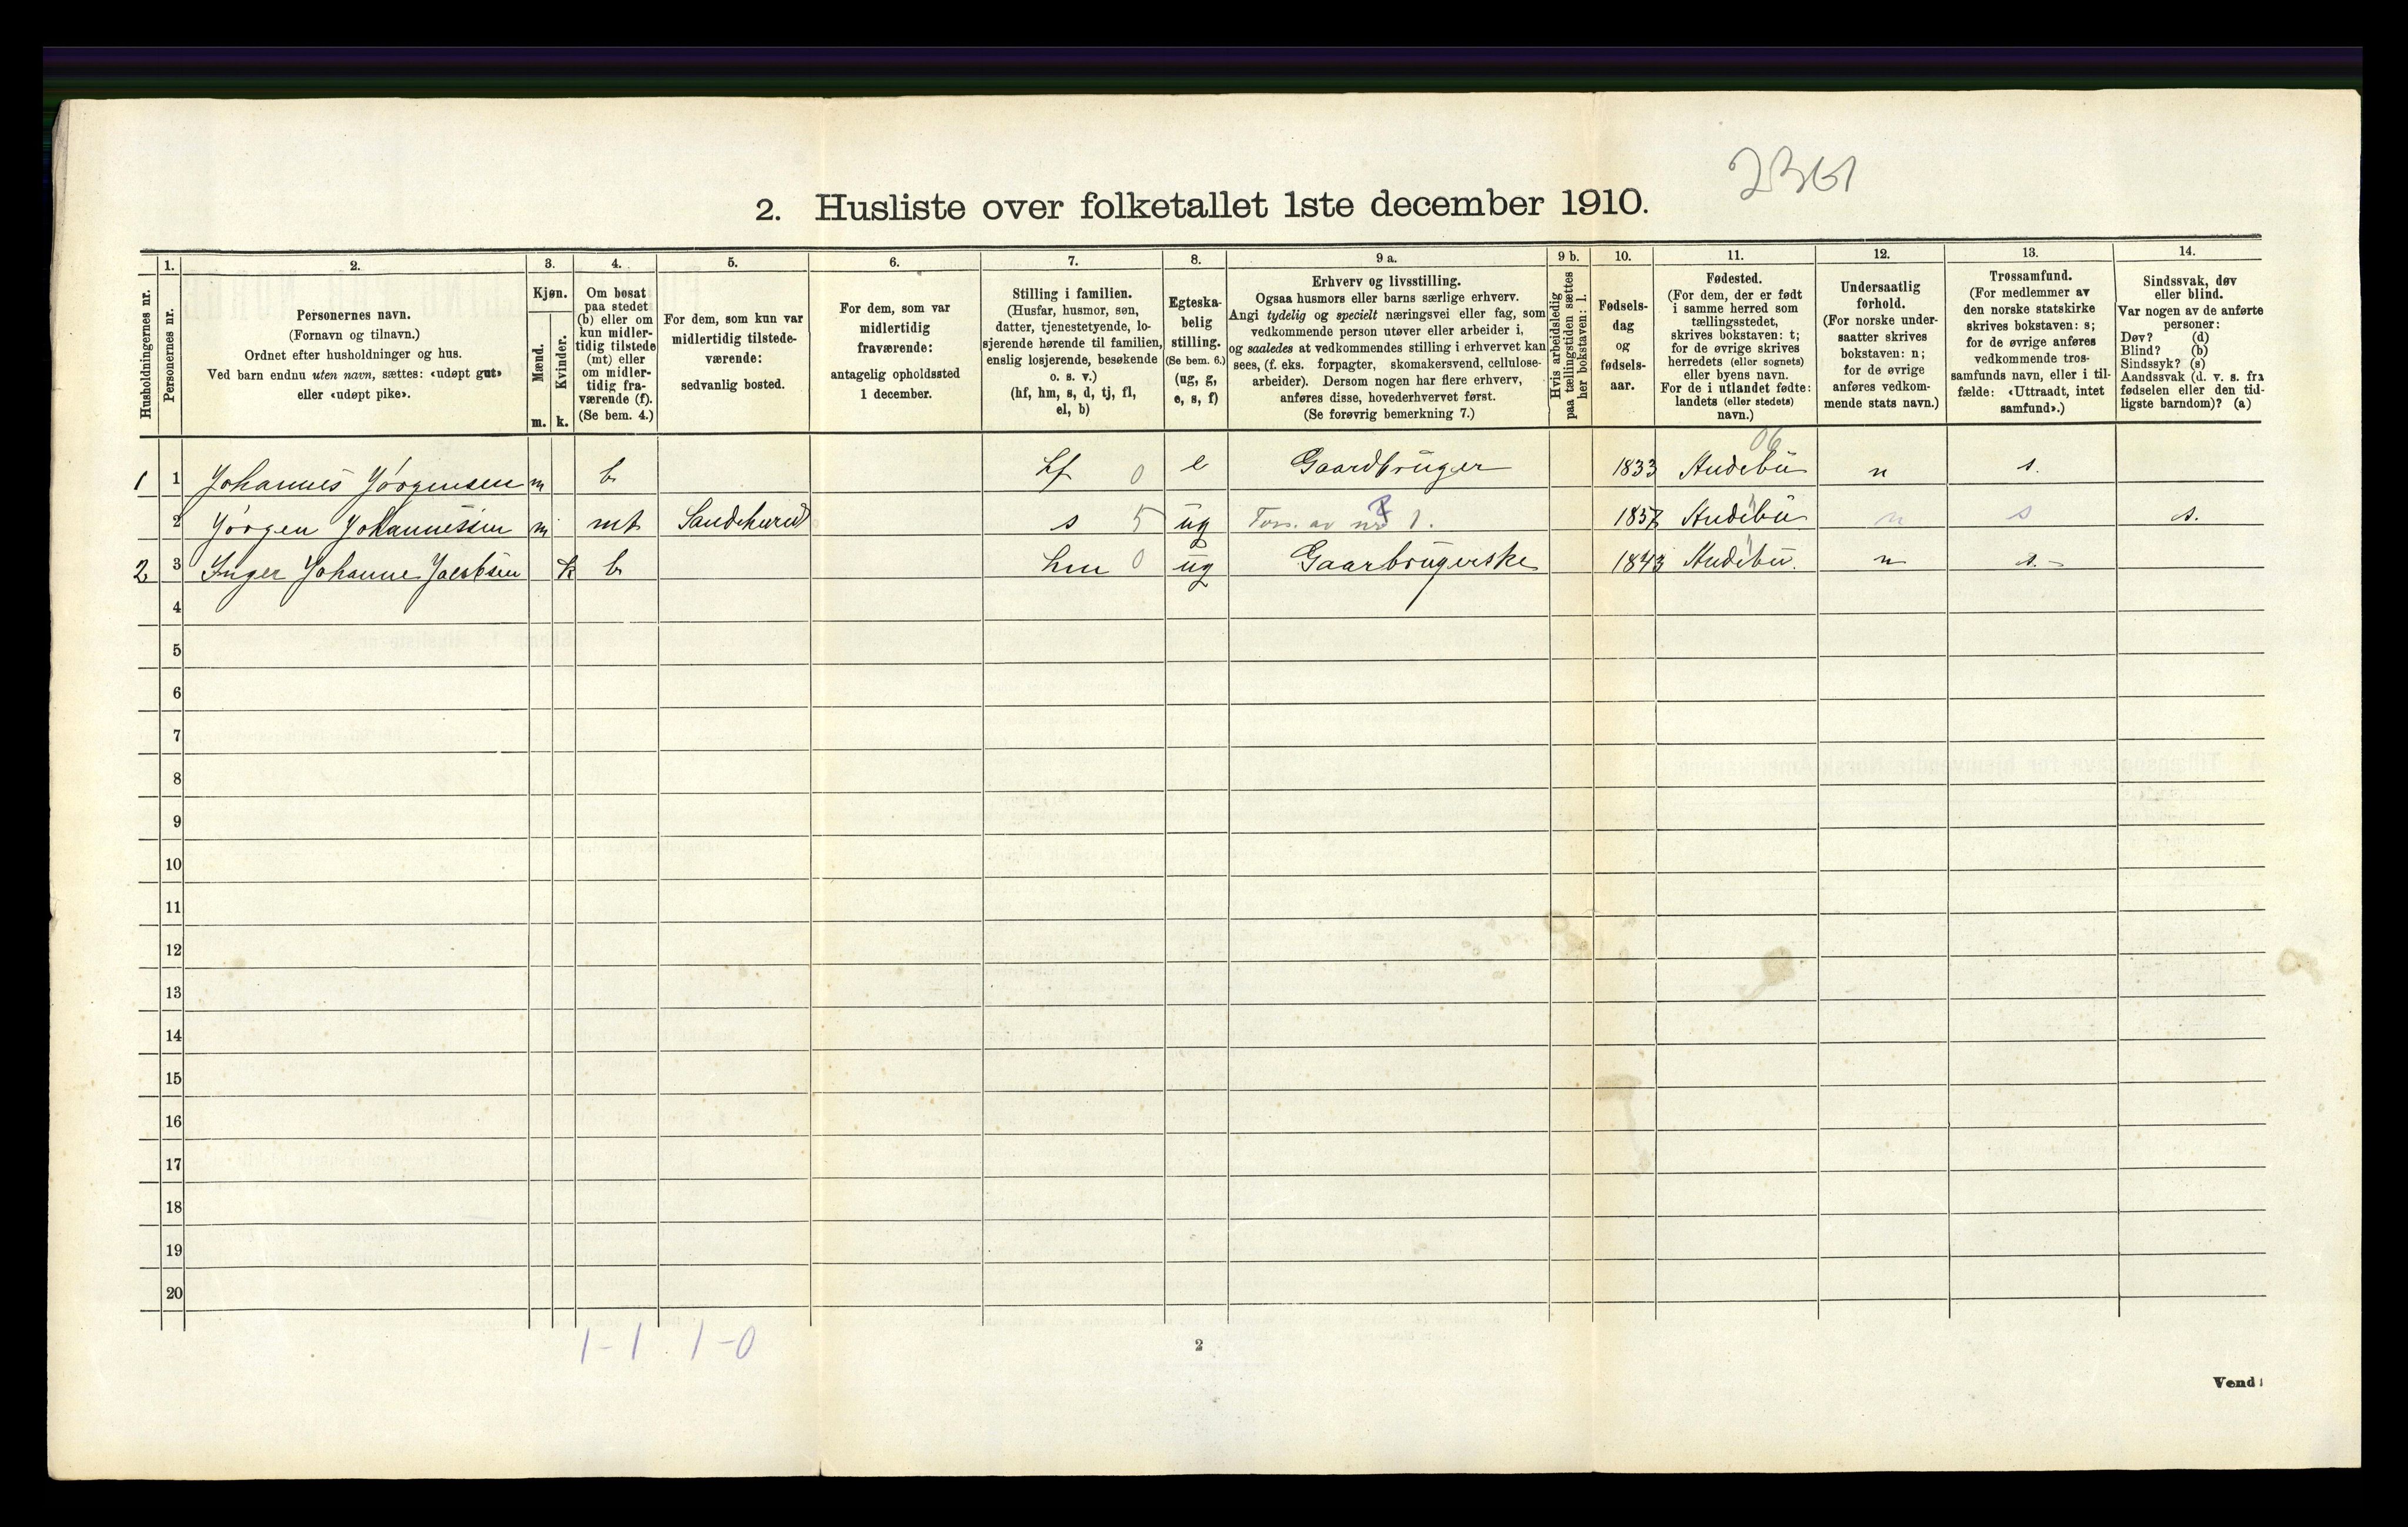 2361
2. Husliste over folketallet 1ste december 1910.
Husholdningernes nr.
1. Personernes nr.
2. Personernes navn.
(Fornavn og tilnavn.)
Ordnet efter husholdninger og hus.
Ved barn endnu uten navn, sættes: «udøpt gut»
eller «udøpt pike».
3. Kjøn.
Mænd. m.
Kvinder. k.
4. Om bosat
paa stedet
(b) eller om
kun midler-
tidig tilstede
(mt) eller
om midler-
tidig fra-
værende (f).
(Se bem. 4.)
5. For dem, som kun var
midlertidig tilstede-
værende:
sedvanlig bosted.
6. For dem, som var
midlertidig
fraværende:
antagelig opholdssted
1 december.
7. Stilling i familien.
(Husfar, husmor, søn,
datter, tjenestetyende, lo-
sjerende hørende til familien,
enslig losjerende, besøkende
o. s. v.)
(hf, hm, s, d, tj, fl,
el, b)
8. Egteska-
belig
stilling.
(Se bem. 6.)
(ug, g,
e, s, f)
9 a. Erhverv og livsstilling.
Ogsaa husmors eller barns særlige erhverv.
Angi tydelig og specielt næringsvei eller fag, som
vedkommende person utøver eller arbeider i,
og saaledes at vedkommendes stilling i erhvervet kan
sees, (f. eks. forpagter, skomakersvend, cellulose-
arbeider). Dersom nogen har flere erhverv,
anføres disse, hovederhvervet først.
(Se forøvrig bemerkning 7.)
9 b. Hvis arbeidsledig
paa tællingstiden sættes
her bokstaven: l.
10. Fødsels-
dag
og
fødsels-
aar.
11. Fødested.
(For dem, der er født
i samme herred som
tællingsstedet,
skrives bokstaven: t;
for de øvrige skrives
herredets (eller sognets)
eller byens navn.
For de i utlandet fødte:
landets (eller stedets)
navn.)
12. Undersaatlig
forhold.
(For norske under-
saatter skrives
bokstaven: n;
for de øvrige
anføres vedkom-
mende stats navn.)
13. Trossamfund.
(For medlemmer av
den norske statskirke
skrives bokstaven: s;
for de øvrige anføres
vedkommende tros-
samfunds navn, eller i til-
fælde: «Uttraadt, intet
samfund».)
14. Sindssvak, døv
eller blind.
Var nogen av de anførte
personer:
Døv? (d)
Blind? (b)
Sindssyk? (s)
Aandssvak (d. v. s. fra
fødselen eller den tid-
ligste barndom)? (a)
06
1 1 Johannes Jørgensen m b hf 0 e Gaardbruger 1833 Andebu n s.
2 Jørgen Johannessen m mt s 5 ug Fors. av nr 1. Andebu n s s.
2 3 Inger Johanne Jacobsen k b hm 0 ug Gaarbrugerske 1843 Andebu. n s.
4
5
6
7
8
9
10
11
12
13
14
15
16
17
18
19
20
1-1 1-0
2
Vend!